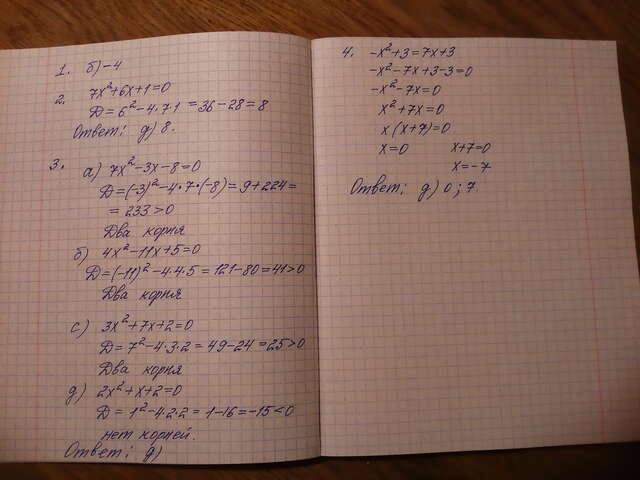 1. б) -4
2. 7x²+6x+1=0
D=6²-4·7·1=36-28=8
Ответ: д) 8.
3. а) 7x²-3x-8=0
D=(-3)²-4·7·(-8)=9+224=
=233>0
Два корня
б) 4x²-11x+5=0
D=(-11)²-4·4·5=121-80=41>0
Два корня
с) 3x²+7x+2=0
D=7²-4·3·2=49-24=25>0
Два корня
д) 2x²+x+2=0
D=1²-4·2·2=1-16=-15<0
нет корней.
Ответ: д)
4. -x²+3=7x+3
-x²-7x+3-3=0
-x²-7x=0
x²+7x=0
x(x+7)=0
x=0 x+7=0
x=-7
Ответ: д) 0; 7.